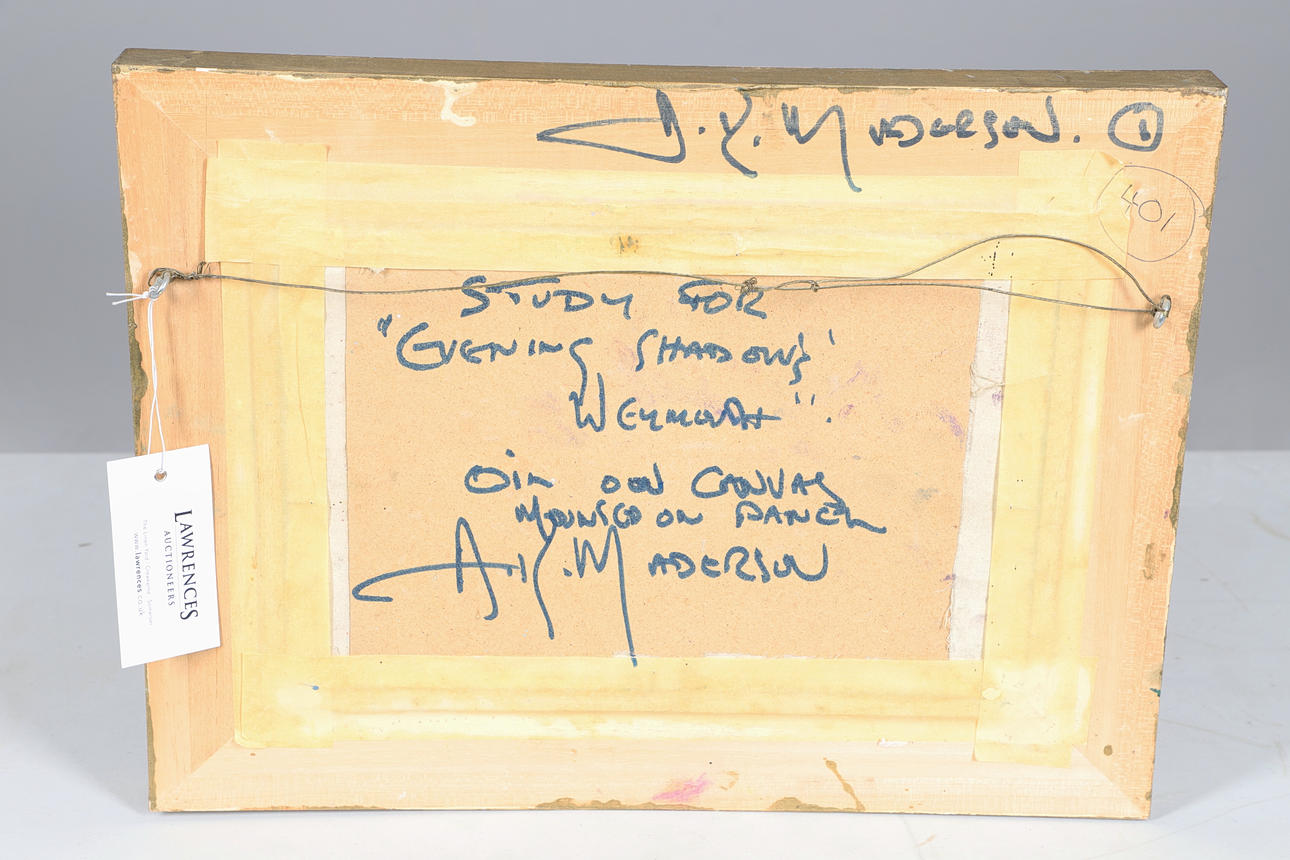 A.K. MADERSON. 1
401
STUDY FOR
"EVENING SHADOWS'
WEYMOUTH".
OIL ON CANVAS
MOUNTED ON PANEL
A.K. MADERSON
LAWRENCES
AUCTIONEERS
The Linen Yard · Crewkerne · Somerset
www.lawrences.co.uk